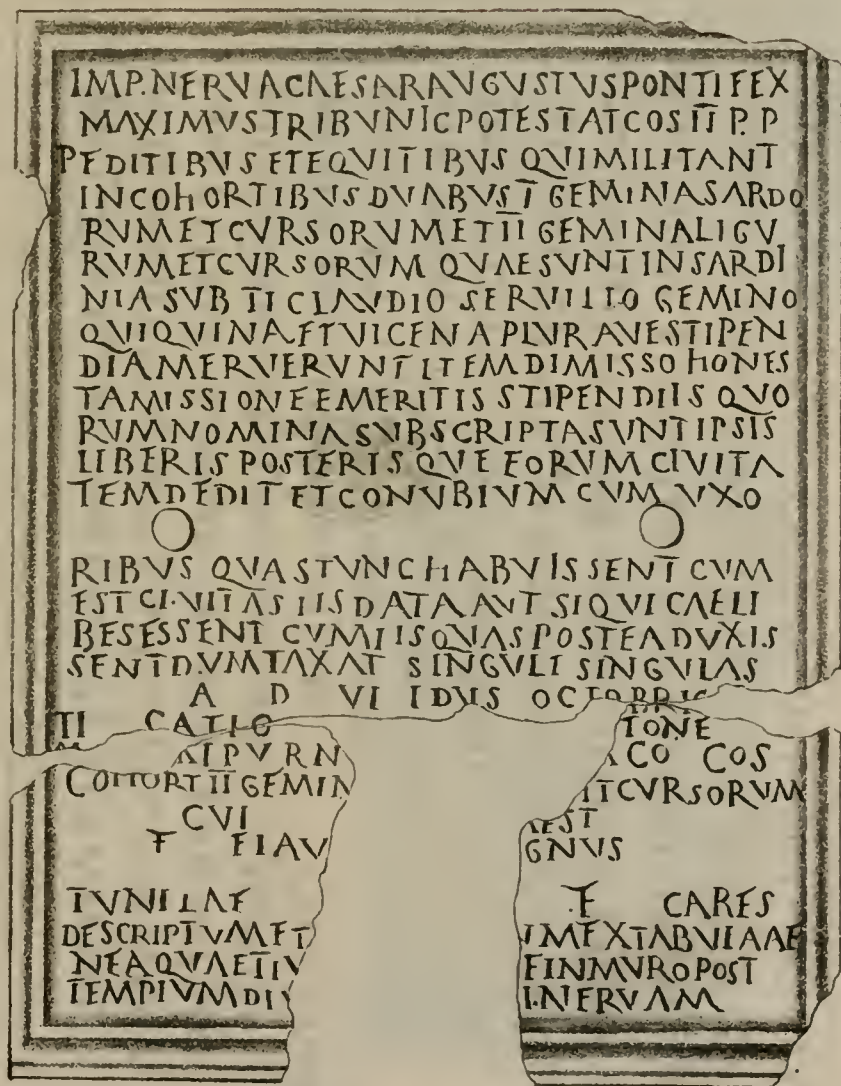 IMP.NERVACAESARAVGVSTVSPONTIFEX
MAXIMVSTRIBVNICPOTESTATCOSII P.P
PEDITIBVS ETEQVITIBVS QVIMILITANT
INCOhORTIBVSDVABVSI GEMINASARDO
RVMETCVRSORVMETII GEMINALIGV
RVMETCVRSORVM QVAESVNTINSARDI
NIASVBTICLAVDIO SERVILIO GEMINO
QVIQVINAETVICENAPLVRAVESTIPEN
DIAMERVERVNTITEMDIMISSOhONES
TAMISSIONEEMERITIS STIPENDIIS QVO
RVMNOMINASVBSCRIPTASVNTIPSIS
LIBERISPOSTERISQVEEORVMCIVITA
TEMDEDITETCONVBIVMCVMVXO
RIBVS QVASTVNCHABVISSENTCVM
ESTCI.VITASIISDATAAVTSIQVICAELI
BESESSENT CVMIISQVASPOSTEADVXIS
SENTDVMTAXAT SINGVLI SINGVLAS
A D VI IDVS OCTOBRIS
TI CATIO TONE
RIPVRN ACO COS
COHORTIIGEMIN ITCVRSORVM
CVI AEST
T FIAV GNVS
TVNILAE F CARES
DESCRIPTVMET IMEXTABVIAAE
NEAQVAETIV EINMVROPOST
TEMPIVMDIV I.NERVAM